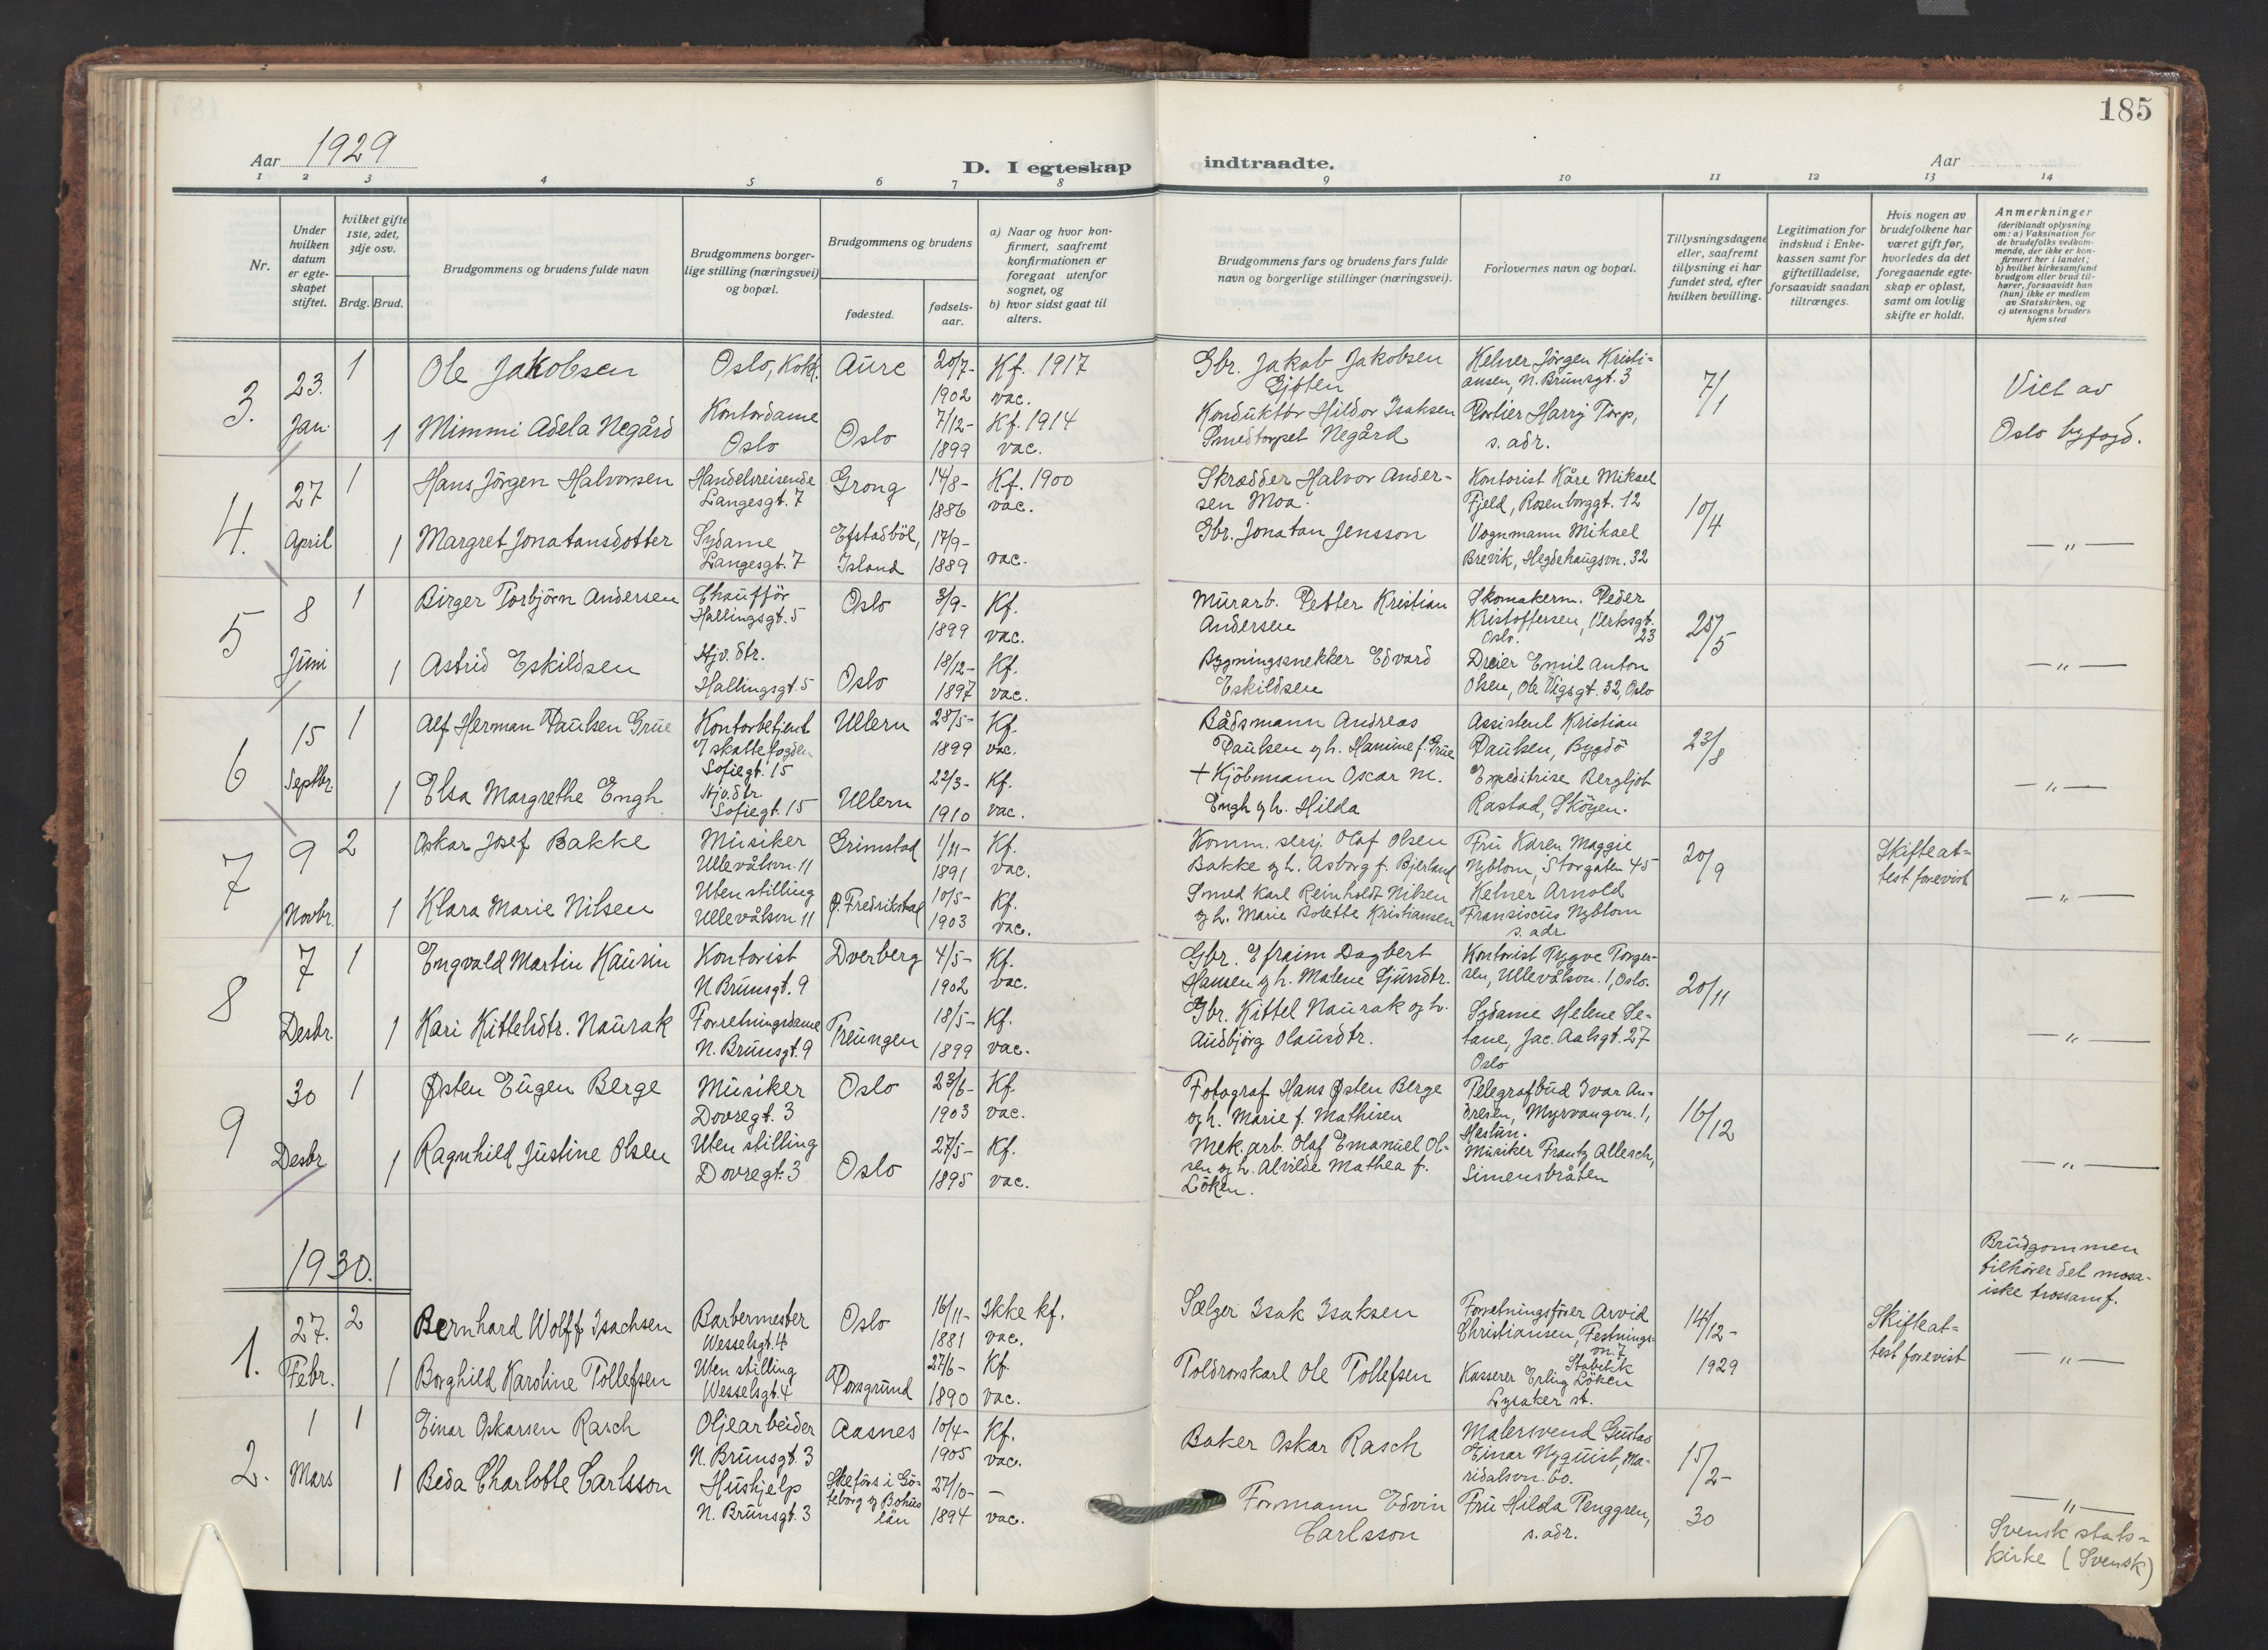 185
Aar 1929
D. I egteskap indtraadte.
Aar
1 2 3 4 5 6 7 8 9 10 11 12 13 14
Nr.
Under hvilken datum er egteskapet stiftet.
hvilket gifte 1ste, 2det, 3dje osv.
Brdg. Brud.
Brudgommens og brudens fulde navn
Brudgommens borgerlige stilling (næringsvei) og bopæl.
Brudgommens og brudens
fødested.
fødselsaar.
a) Naar og hvor konfirmert, saafremt konfirmationen er foregaat utenfor sognet, og
b) hvor sidst gaat til alters.
Brudgommens fars og brudens fars fulde navn og borgerlige stillinger (næringsvei).
Forlovernes navn og bopæl.
Tillysningsdagene eller, saafremt tillysning ei har fundet sted, efter hvilken bevilling.
Legitimation for indskud i Enkekassen samt for giftetilladelse, forsaavidt saadan tiltrænges.
Hvis nogen av brudefolkene har været gift før, hvorledes da det foregaaende egteskap er opløst, samt om lovlig skifte er holdt.
Anmerkninger (deriblandt oplysning om: a) Vaksination for de brudefolks vedkommende, der ikke er konfirmert her i landet; b) hvilket kirkesamfund brudgom eller brud tilhører, forsaavidt han (hun) ikke er medlem av Statskirken, og c) utensogns bruders hjemsted
3. 23. Jan.
1 Ole Jakobsen Oslo, Kokk. Aure 20/7-1902 Kf. 1917 vac. Gbr. Jakob Jakobsen Gjöten Kelner Jörgen Kristiansen, N. Brünsgt. 3 7/1 Viet av Oslo byfogd.
1 Mimmi Adela Negård Kontordame Oslo Oslo 7/12-1899 Kf. 1914 vac. Konduktör Hildor Isaksen Smedtorpet Negård Portier Harry Torp, s. adr.
4. 27 April
1 Hans Jörgen Halvorsen Handelsreisende Langesgt. 7 Grong 14/8-1886 Kf. 1900 vac. Skrædder Halvor Andersen Moa. Kontorist Kåre Miksel Fjeld, Rosenborggt. 12 10/4 — " —
1 Margret Jonatansdotter Sydame Langesgt. 7 Efstadböl, Island 17/9-1889 vac. Gbr. Jonatan Jensson Vognmann Mikael Brevik, Hegdehaugsvn. 32
5 8 Jüni
1 Birger Torbjörn Andersen Chaufför Hallingsgt. 5 Oslo 3/9-1899 Kf. vac. Mürarb. Petter Kristian Andersen Skomakerm. Peder Kristoffersen, Verksgt. 23 Oslo. 25/5 — " —
1 Astrid Eskildsen Hjv. dtr. Hallingsgt. 5 Oslo 18/12-1897 Kf. vac. Bygningssnekker Edvard Eskildsen Dreier Emil Anton Olsen, Ole Vigsgt. 32, Oslo
6 15 Septbr.
1 Alf Herman Paulsen Grüe Kontorbetjent skattefogden Sofiegt. 15 Ullern 28/5-1899 Kf. vac. Bådsmann Andreas Paulsen og h. Hanine f. Grüe Assistent Kristian Paulsen, Bygdö 23/8 — " —
1 Elsa Margrethe Engh Hjv. dtr. Sofiegt. 15 Ullern 22/3-1910 Kf. vac. + Kjöbmann Oscar M. Engh og h. Hilda Expeditrise Bergljot Rastad, Sköyen.
7 9 Novbr.
2 Oskar Josef Bakke Müsiker Ullevålsvn. 11 Grimstad 1/11-1891 Kf. vac. Komm. sersj. Olaf Olsen Bakke og h. Asborg f. Bjerland Frü Karen Maggie Nyblom, Storgaten 45 20/9 Skifteattest forevist — " —
1 Klara Marie Nilsen Uten stilling Ullevålsvn 11 Ø. Fredrikstad 10/5-1903 Kf. vac. Smed Karl Reinholdt Nilsen og h. Marie Bolette Kristiansen Kelner Arnold Fransiscus Nyblom s. adr.
8 7 Desbr.
1 Engvald Martin Haürin Kontorist N. Brünsgt. 9 Dverberg 4/5-1902 Kf. vac. Gbr. Efraim Dagbert Hansen og h. Malene Sjürsdtr. Kontorist Trygve Torgersen, Ullevålsvn. 1, Oslo. 20/11 — " —
1 Kari Kittelsdtr. Naürak Forretningsdame N. Brünsgt. 9 Treüngen 18/5-1899 Kf. vac. Gbr. Kittel Naürak og h. Aüdbjörg Olaüsdtr. Sydame Helene Setane, Jac. Aalsgt. 27 Oslo
9 30 Desbr
1 Østen Eügen Berge Müsiker Dovregt. 3 Oslo 23/6-1903 Kf. vac. Fotograf Hans Østen Berge og h. Marie f. Mathisen Telegrafbüd Ivar Andresen, Myrvangvn. 1, Haslün. 16/12 — " —
1 Ragnhild Jüstine Olsen Uten stilling Dovregt. 3 Oslo 27/5-1895 Kf. vac. Mek. arb. Olaf Emanuel Olsen og h. Alvilde Mathea f. Löken. Müsiker Frantz Allesch, Simensbråten
1930.
1. 27. Febr.
2 Bernhard Wolff Isachsen Barbermester Wesselsgt. 4 Oslo 16/11-1881 Ikke kf. vac. Sælger Isak Isaksen Forretningsförer Arvid Christiansen, Festningsvn. 7 Stabekk 14/12-1929 Skifteattest forevist Brüdgommen tilhörer det mosaiske trossamf. — " —
1 Borghild Karoline Tollefsen Uten stilling Wesselsgt. 4 Porsgründ 27/6-1890 Kf. vac. Toldrorskarl Ole Tollefsen Kasserer Erling Löken Lysaker st.
2. 1 Mars
1 Einar Oskarsen Rasch Oljearbeider N. Brünsgt. 3 Aasnes 10/4-1905 Kf. vac. Baker Oskar Rasch Malersvend Güstav Einar Nyqüist, Maridalsvn. 60. 15/2-30 — " —
1 Beda Charlotte Carlsson Hüshjelp N. Brünsgt. 3 Skefors i Göteborg og Bohüs län 27/10-1894 — vac. Formann Edvin Carlsson Frü Hilda Tenggren, s. adr. Svensk statskirke (Svensk)